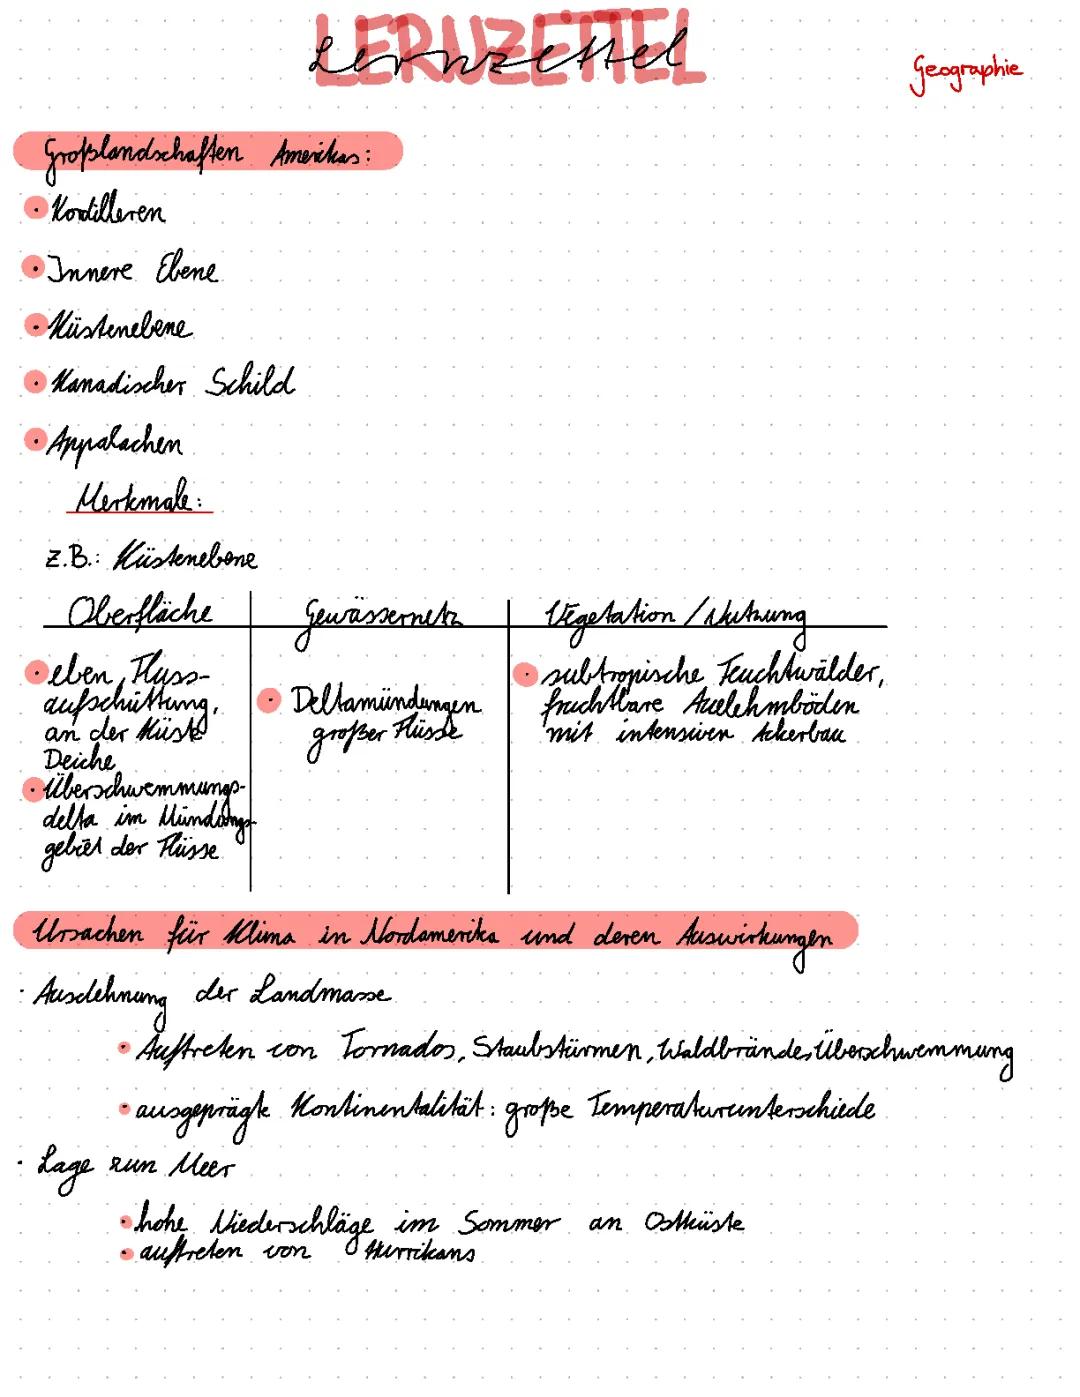 LERNZETTEL
Lernzettel
Geographie
Großlandschaften Amerikas:
· Kordilleren
· Innere Ebene
· Küstenebene
· Kanadischer Schild
· Appalachen
Merkmale:
z.B.: Küstenebene
Oberfläche Gewässernetz Vegetation / Nutzung
· eben, Fluss-
aufschüttung,
an der Küste
Deiche
· Überschwemmungs-
delta im Mündungs-
gebiet der Flüsse
· Deltamündungen
großer Flüsse
· subtropische Feuchtwälder,
fruchtbare Auelehmböden
mit intensiven Ackerbau
Ursachen für Klima in Nordamerika und deren Auswirkungen
· Ausdehnung der Landmasse
· Auftreten von Tornados, Staubstürmen, Waldbrände, Überschwemmung
· ausgeprägte Kontinentalität: große Temperaturunterschiede
· Lage zum Meer
· hohe Niederschläge im Sommer an Ostküste
· auftreten von Hurrikans